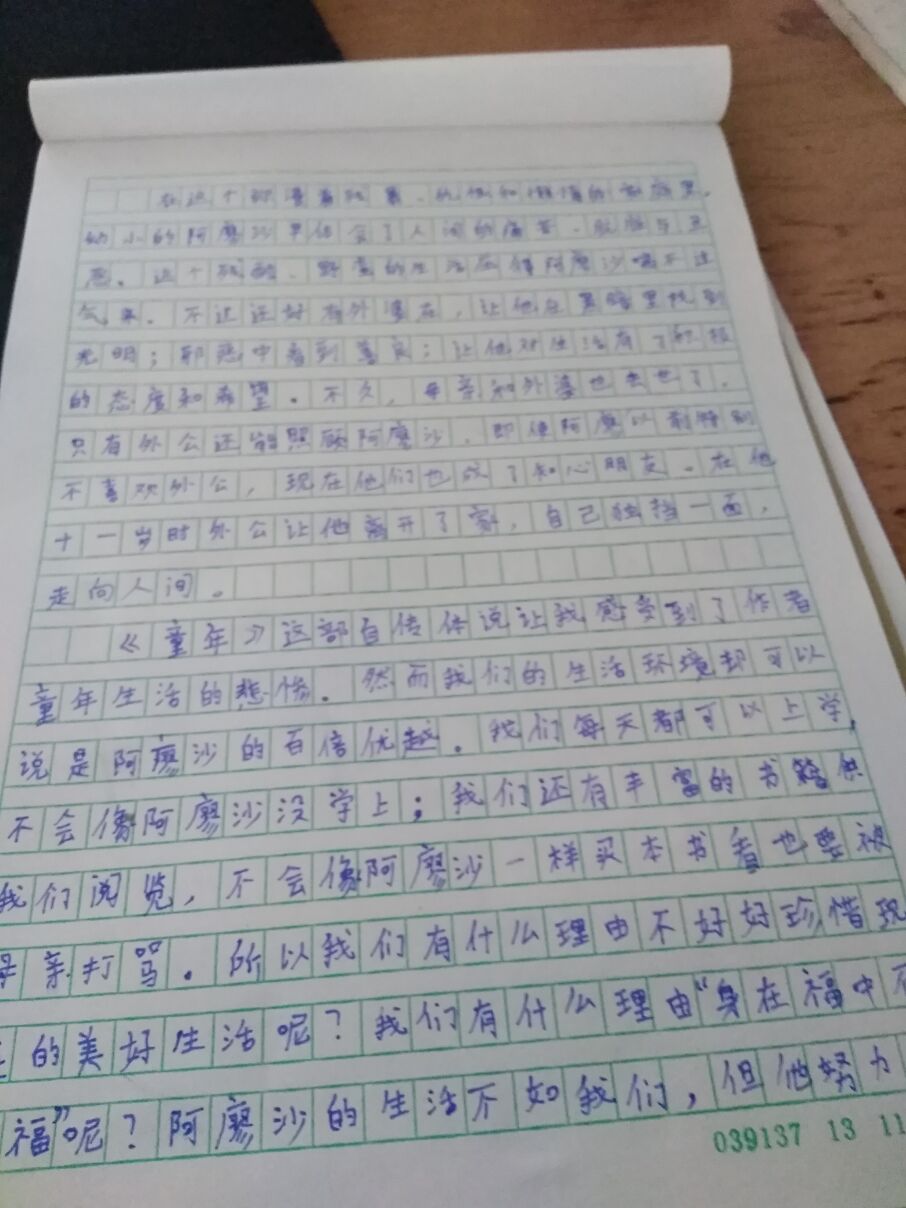 在这个弥漫着残暴、仇恨和的家庭里,
幼小的阿廖沙早体会了人间的痛苦、肮脏与丑
恶。这个残酷、野蛮的生活压得阿廖沙喘不过
气来。不过还好有外婆在,让他在黑暗里找到
光明;邪恶中看到善良;让他对生活有了积极
的态度和希望。不久,母亲和外婆也去世了,
只有外公还能照顾阿廖沙,即使阿廖以前特别
不喜欢外公,现在他们也成了知心朋友。在他
十一岁时外公让他离开了家,自己独挡一面,
走向人间。
《童年》这部自传体说让我感受到了作者
童年生活的悲惨。然而我们的生活环境却可以
说是阿廖沙的百倍优越。我们每天都可以上学,
不会像阿廖沙没学上;我们还有丰富的书籍供
我们阅览,不会像阿廖沙一样买本书看也要被
母亲打骂。所以我们有什么理由不好好珍惜现
的美好生活呢?我们有什么理由“身在福中不
福”呢?阿廖沙的生活不如我们,但他努力
039137 13 11